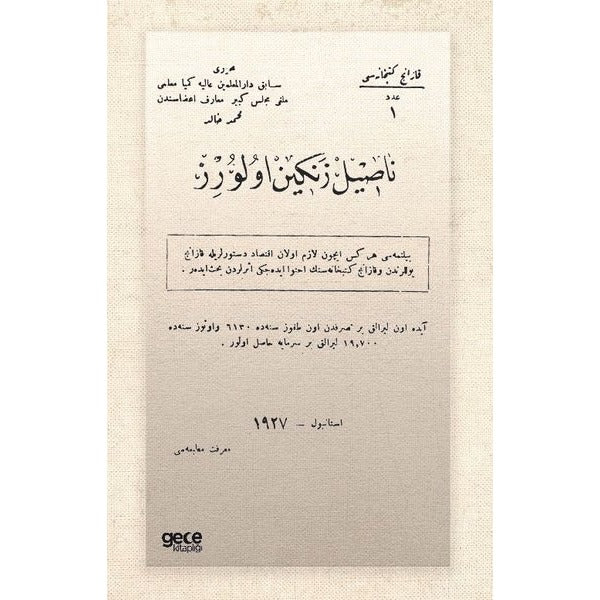 قازانج كتبخانه‌سی
عدد
١
محرری
سابق دارالمعلمین عالیه كیمیا معلمی
ملی مجلس كبیر معارف اعضاسندن
محمد خالد
ناصیل زنكین اولورز
بیلنمه‌سی هر كس ایچون لازم اولان اقتصاد دستورلریله قازانج
یوللرندن وقازانج كتبخانه‌سنك احتوا ایده‌جكی اثرلردن بحث ایدر .
آیده اون لیرالق بر تصرفدن اون طقوز سنه‌ده ٦١٣٠ واوتوز سنه‌ده
١٩,٧٠٠ لیرالق بر سرمایه حاصل اولور .
استانبول — ١٩٢٧
معرفت مطبعه‌سی
gece
kitaplığı